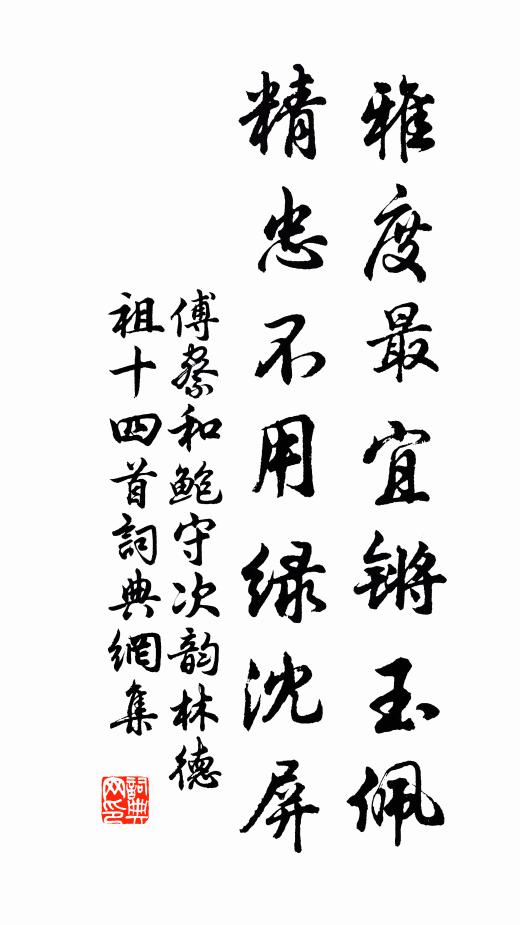 雅度最宜锵玉佩
精忠不用绿沈屏
傅察和鲍守次韵林德
祖十四首詞典網集
詞典网印